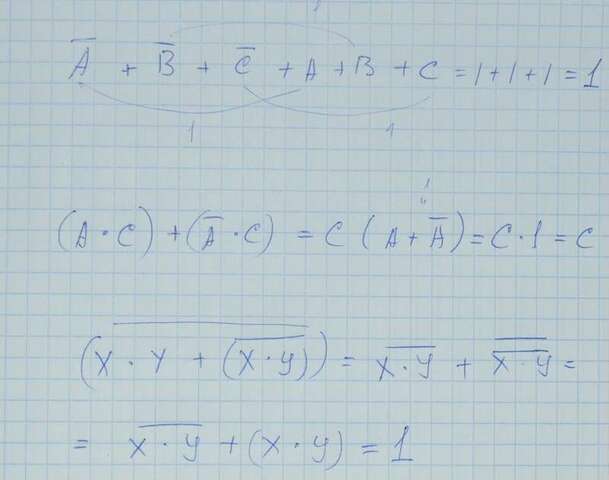 A̅ + B̅ + C̅ + A + B + C = 1 + 1 + 1 = 1
1 1
1
"
(A · C) + (A̅ · C) = C (A + A̅) = C · 1 = C
(\overline{X · Y + (\overline{X · Y})}) = \overline{X · Y} + \overline{\overline{X · Y}} =
= \overline{X · Y} + (X · Y) = 1